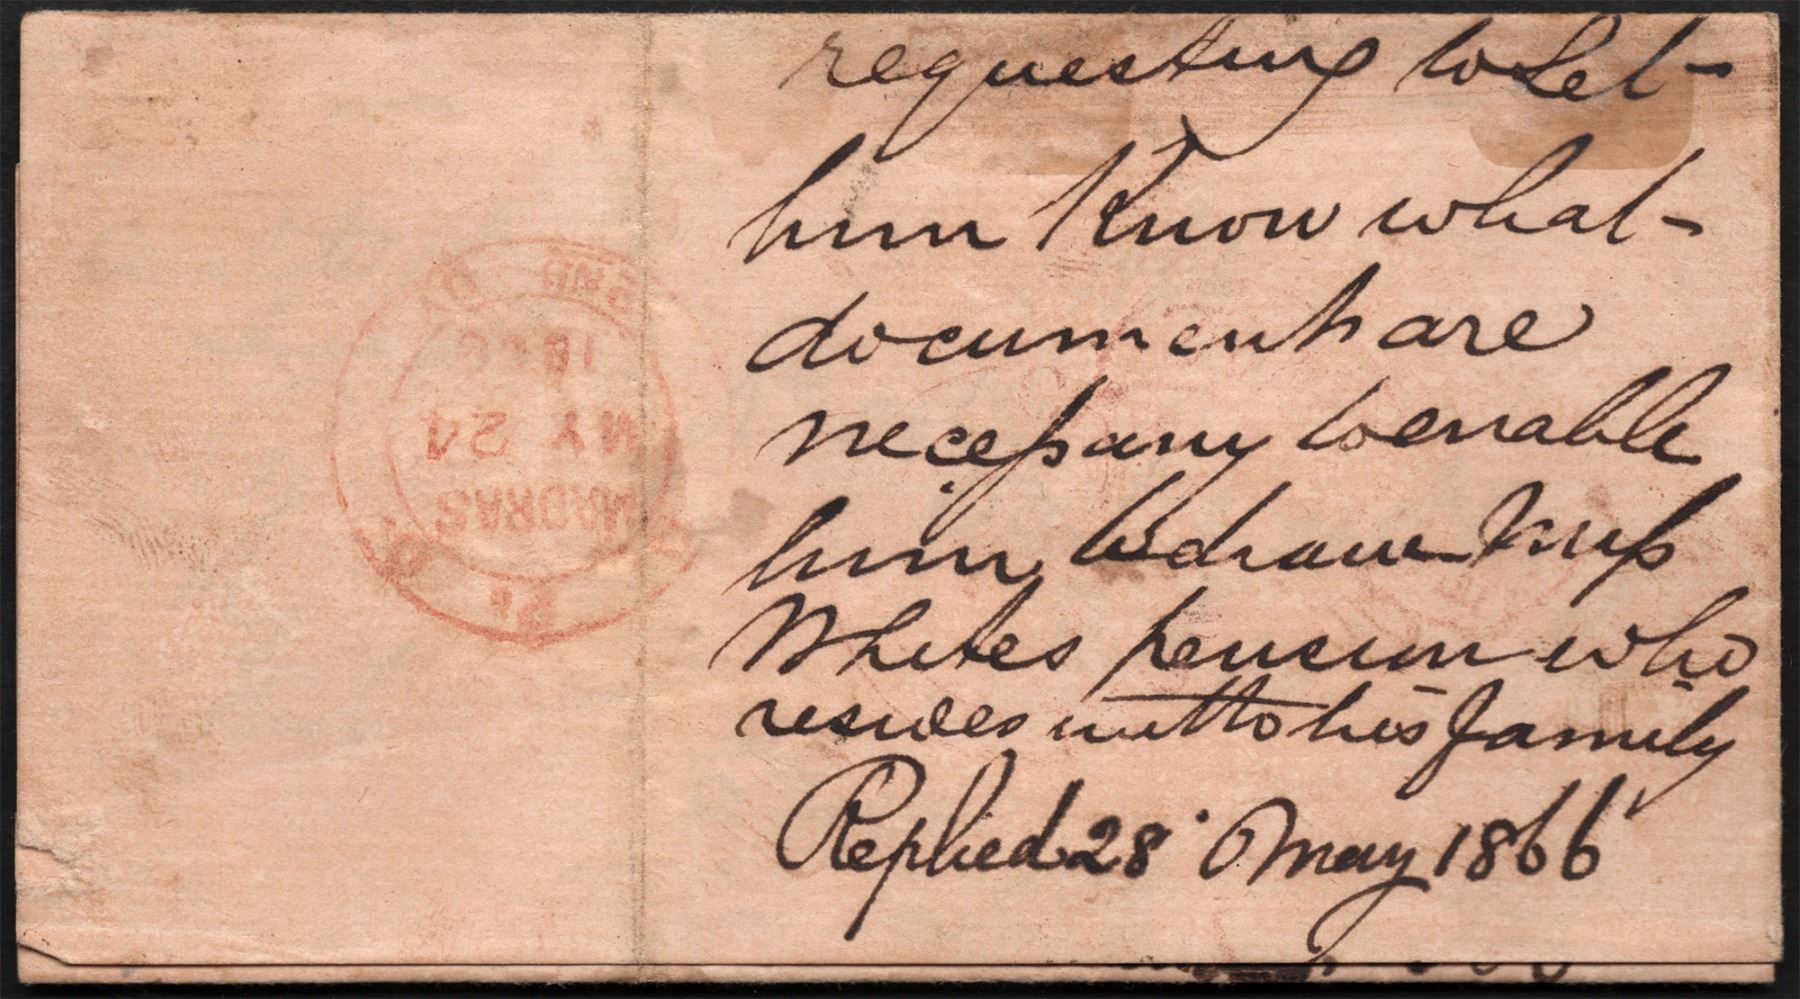 requesting to let
him Know what
documents are
necessary to enable
him to draw Miss
Whites pension who
resides with his family
Replied 28 May 1866
MADRAS
MY 24
1866
2ND DY